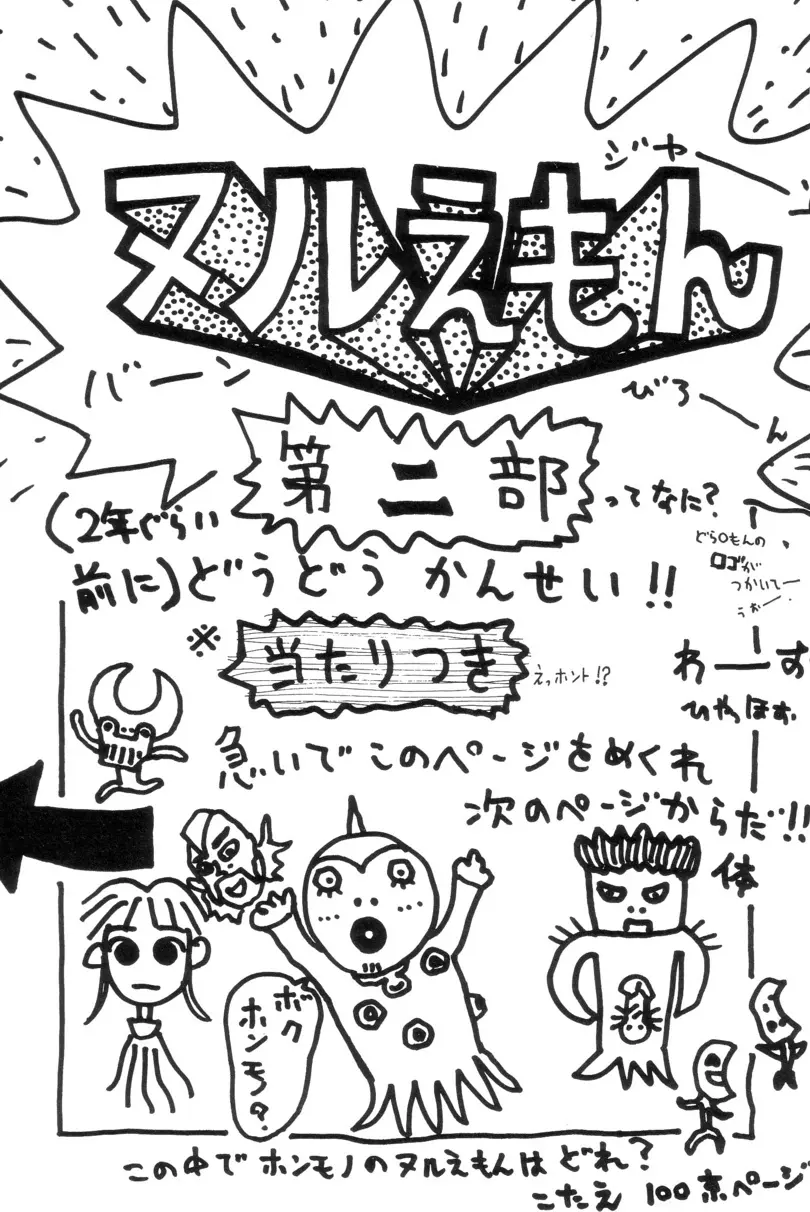 ジャー
ヌルえもん
バーン
びろーん
第二部
ってなに?
(2年ぐらい
前に)どうどう かんせい!!
どら○もんの
ロゴが
つかいてー
うおー
※当たりつき
えっホント!?
わーーす
ひゃっほお
急いでこのページをめくれ
次のページからだ!!
体
ボク
ホンモノ?
この中でホンモノのヌルえもんはどれ?
こたえ 100京ページ